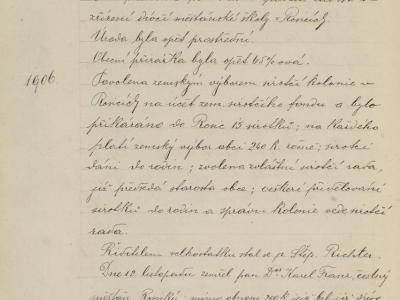 zřízení dívčí měšťanské školy v Ronově.
Úroda byla opět prostřední.
Obecní přirážka byla opět 65% ová.
1906.
Povolena zemským výborem sirotčí kolonie v
Ronově na účet zem. sirotčího fondu a bylo
přikázáno do Ronova 13 sirotků; na každého
platí zemský výbor obci 240 k. ročně; sirotci
dáni do rodin; zvolena zvláštní sirotčí rada,
jíž předsedá starosta obce; veškeré přidělování
sirotků do rodin a správu kolonie vede sirotčí
rada.
Ředitelem velkostatku stal se p. Štěp. Richter.
Dne 12. listopadu zemřel pan Dr. Karel Franz, čestný
měšťan Ronovský; mimo obnos 200 k. jež byl již dříve